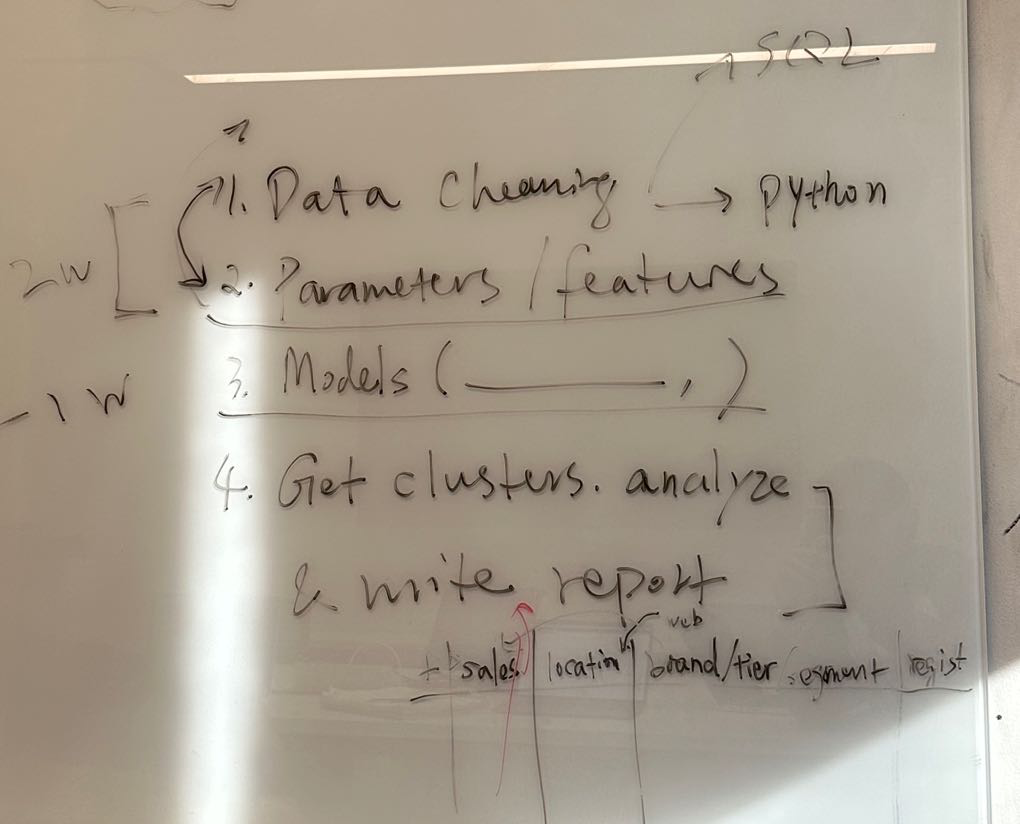 SQL
1. Data Cheaning → python
2w
2. Parameters / features
3. Models ( ______ , )
-1 W
4. Get clusters. analyze
& write report
web
+ sales location brand/tier segment regist